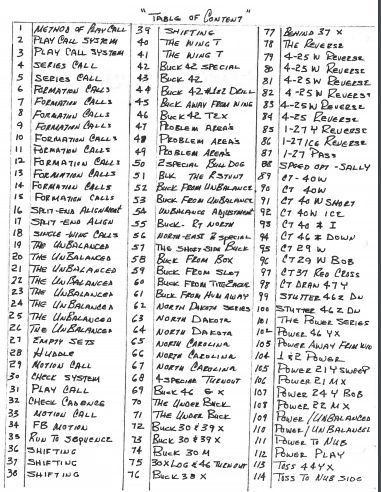 "TABLE OF CONTENT"
1 METHOD OF PLAY CALL
2 PLAY CALL SYSTEM
3 PLAY CALL SYSTEM
4 SERIES CALL
5 SERIES CALL
6 FORMATION CALLS
7 FORMATION CALLS
8 FORMATION CALLS
9 FORMATION CALLS
10 FORMATION CALLS
11 FORMATION CALLS
12 FORMATION CALLS
13 FORMATION CALLS
14 FORMATION CALLS
15 FORMATION CALLS
16 SPLIT-END ALIGNMENT
17 SPLIT-END ALIGN
18 SINGLE-WING CALLS
19 THE UNBALANCED
20 THE UNBALANCED
21 THE UNBALANCED
22 THE UNBALANCED
23 THE UNBALANCED
24 THE UNBALANCED
25 THE UNBALANCED
26 THE UNBALANCED
27 EMPTY SETS
28 HUDDLE
29 MOTION CALL
30 CHECK SYSTEM
31 PLAY CALL
32 CHECK CADENCE
33 MOTION CALL
34 FB MOTION
35 RUN TO SEQUENCE
36 SHIFTING
37 SHIFTING
38 SHIFTING
39 SHIFTING
40 THE WING T
41 THE WING T
42 BUCK 42 SPECIAL
43 BUCK 42
44 BUCK 42 #102 DRILL
45 BUCK AWAY FROM WING
46 BUCK 42 T2X
47 PROBLEM AREA'S
48 PROBLEM AREA'S
49 PROBLEM AREA'S
50 2SPECIAL BULLDOG
51 BUCK THE R STUNT
52 BUCK FROM UNBALANCE
53 BUCK FROM UNBALANCE
54 UNBALANCE ADJUSTMENT
55 BUCK RT NORTH
56 NORTH-EAST 2 SPECIAL
57 THE SHORT SIDE BUCK
58 BUCK FROM BOX
59 BUCK FROM SLOT
60 BUCK FROM
61 BUCK FROM HUM AWAY
62 NORTH DAKOTA SERIES
63 NORTH DAKOTA
64 NORTH DAKOTA
65 NORTH CAROLINA
66 NORTH CAROLINA
67 NORTH CAROLINA
68 4-SPECIAL TURNOUT
69 BUCK 46 G X
70 THE UNDER BUCK
71 THE UNDER BUCK
72 BUCK 30 & 39 X
73 BUCK 30 & 39 X
74 BUCK 30 M
75 30X LOG & 46 TURNOUT
76 BUCK 38 X
77 BEHIND 37 X
78 THE REVERSE
79 4-25 W REVERSE
80 4-25 W REVERSE
81 4-25 W REVERSE
82 4-25 W REVERSE
83 4-25 W REVERSE
84 4-25 W REVERSE
85 1-27 Y REVERSE
86 1-27 ICE REVERSE
87 1-27 PASS
88 SPEED OPT-SALLY
89 CT-40W
90 CT 40W
91 CT 40 W SHORT
92 CT 40W ICE
93 CT 40 & I
94 CT 46 & DOWN
95 CT 29 W
96 CT 29 W BOB
97 CT 37 RED CROSS
98 CT DRAW 47 Y
99 STUTTER 46 & DN
100 STUTTER 46 & DN
101 THE POWER SERIES
102 POWER 46 YX
103 POWER AWAY FROM WING
104 1 & 2 POWER
105 POWER 21 Y SWEEP
106 POWER 21 M X
107 POWER 24 Y BOB
108 POWER 22 M X
109 POWER/UNBALANCED
110 POWER/UNBALANCED
111 POWER TO NUB
112 POWER PLAY
113 TOSS 44 YX
114 TOSS TO NUB SIDE